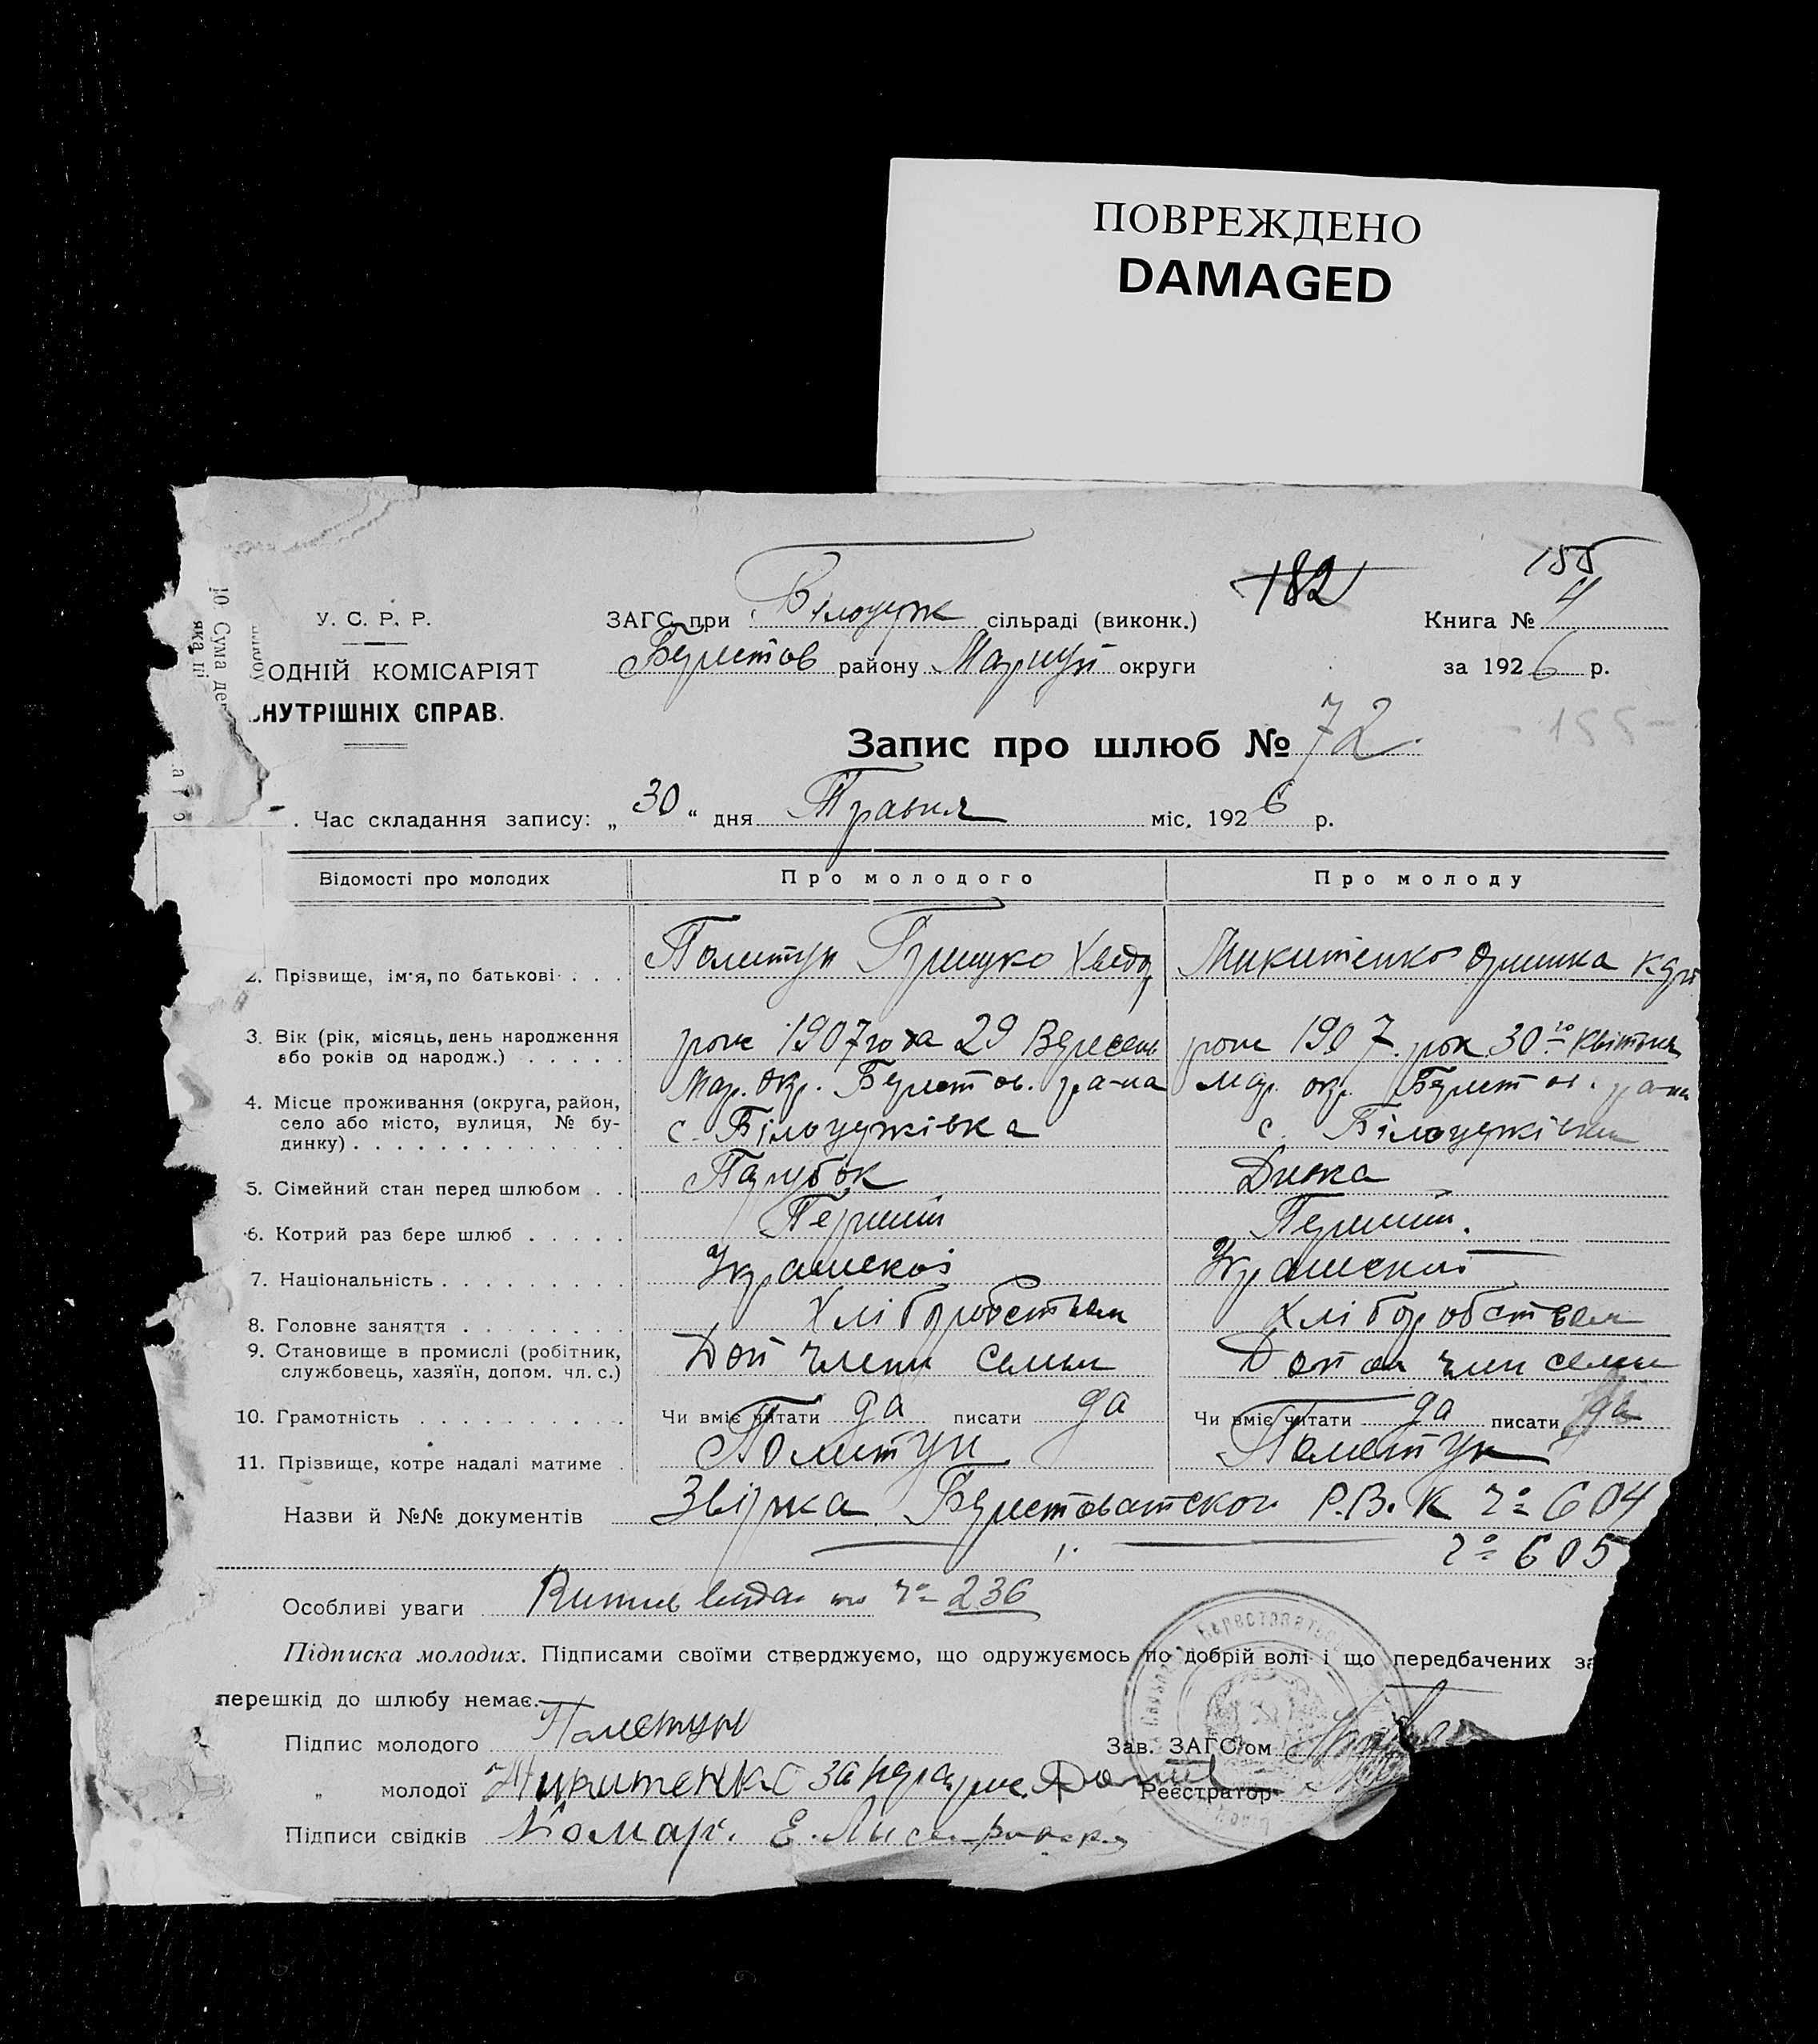 ПОВРЕЖДЕНО
DAMAGED
155
182
У. С. Р. Р.
ЗАГС при Білоцерк сільраді (виконк.)
Книга № 4
ОДНІЙ КОМІСАРІЯТ
Берестов району Маріуп округи
за 1926 р.
НУТРІШНІХ СПРАВ.
Запис про шлюб № 72
- 155 -
Час складання запису: „ 30 “ дня Травня міс. 1926 р.
Відомості про молодих
Про молодого
Про молоду
2. Прізвище, ім'я, по батькові . . .
Полетун Грицуко Хведо
Микитенко Оришка
3. Вік (рік, місяць, день народження
або років од народж.) . . . . .
рок 1907 года 29 Вересень
роки 1907 рок 30го Квітня
4. Місце проживання (округа, район,
село або місто, вулиця, № бу-
динку) . . . . . . . . . . . . .
Мар. окр. Берестов. ра-на
с. Білоцерківка
мар. окр. Берестов. ра-на
с. Білоцерківки
5. Сімейний стан перед шлюбом . .
Парубок
Дивка
6. Котрий раз бере шлюб . . . . .
Перший
Перший.
7. Національність . . . . . . . . .
Українскої
Українскої
8. Головне заняття . . . . . . . .
Хліборобством
Хліборобством
9. Становище в промислі (робітник,
службовець, хазяїн, допом. чл. с.)
Доп члени семьи
Допом член семьи
10. Грамотність . . . . . . . . . .
Чи вміє читати да писати да
Чи вміє читати да писати да
11. Прізвище, котре надалі матиме .
Полетун
Полетун
Назви й №№ документів Звірка Берестоватского Р.В.К № 604
№ 605
Особливі уваги видано № 236
Підписка молодих. Підписами своїми стверджуємо, що одружуємось по добрій волі і що передбачених за
перешкід до шлюбу немає.
Підпис молодого Полетун
Зав. ЗАГС'ом
„ молодої Микитенко за неграм.
Реєстратор
Підписи свідків Комар. Е.